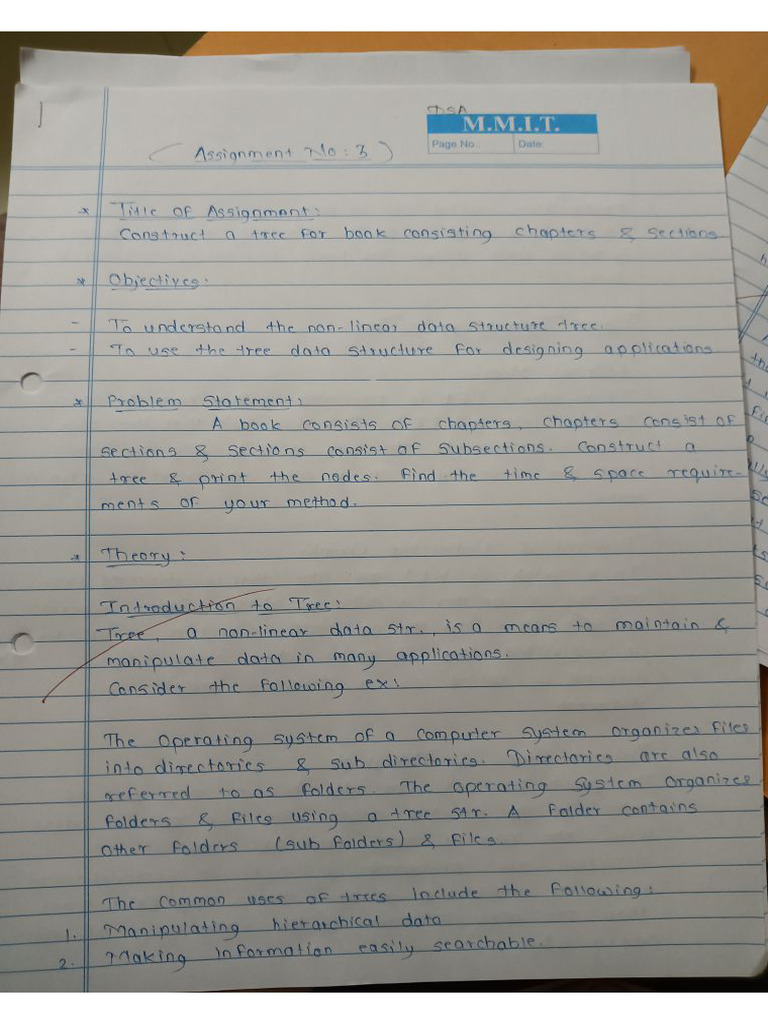 1
DSA
M.M.I.T.
Page No.: Date:
( Assignment No : 3 )
* Title of Assignment:
Construct a tree for book consisting chapters & sections
* Objectives:
- To understand the non-linear data structure tree.
- To use the tree data structure for designing applications
* Problem Statement:
A book consists of chapters, chapters consist of
sections & sections consist of subsections. Construct a
tree & print the nodes. Find the time & space require-
ments of your method.
* Theory:
Introduction to Tree:
Tree, a non-linear data str., is a means to maintain &
manipulate data in many applications.
Consider the following ex:
The operating system of a computer system organizes files
into directories & sub directories. Directories are also
referred to as folders. The operating system organizes
folders & files using a tree str. A folder contains
other folders (sub folders) & files.
The common uses of trees include the following:
1. Manipulating hierarchical data
2. Making information easily searchable.